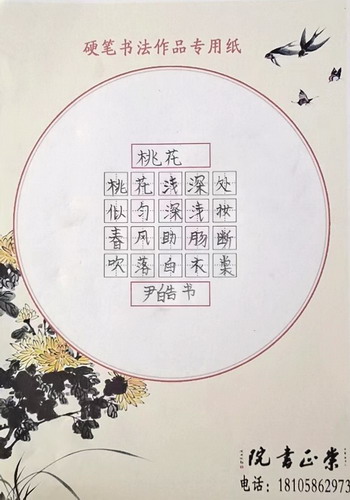 硬笔书法作品专用纸
桃花
桃花浅深处
似匀深浅妆
春风助肠断
吹落白衣裳
尹皓书
崇正書院
电话：18105862973